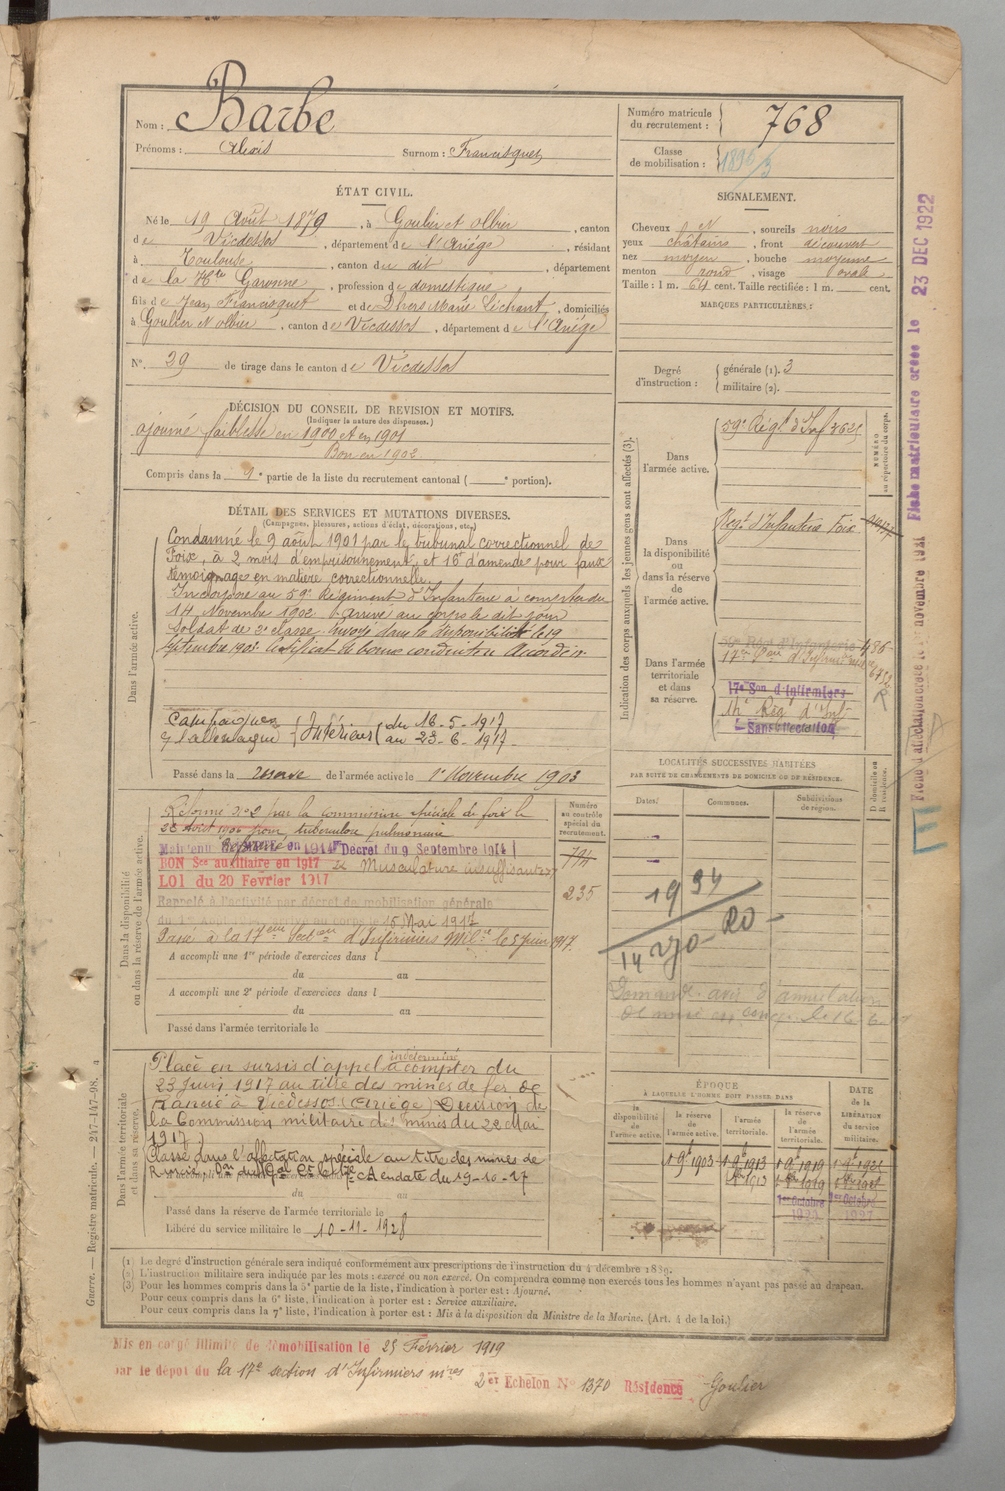 Nom : Barbe
Prénoms : Alexis Surnom : Francisquet
Numéro matricule
du recrutement : 768
Classe
de mobilisation : 1896/3
ÉTAT CIVIL.
Né le 19 Août 1879, à Goulier et Olbier, canton
de Vicdessos, département de l'Ariège, résidant
à Toulouse, canton du dit, département
de la Hte Garonne, profession de domestique
fils de Jean Francisquet et de Marie, domiciliés
à Goulier et Olbier, canton de Vicdessos, département de l'Ariège
N° 29 de tirage dans le canton de Vicdessos
SIGNALEMENT.
Cheveux N, sourcils noirs
yeux châtains, front découvert
nez moyen, bouche moyenne
menton rond, visage ovale
Taille : 1 m. 64 cent. Taille rectifiée : 1 m. cent.
MARQUES PARTICULIÈRES :
Degré
d'instruction :
générale (1). 3
militaire (2).
DÉCISION DU CONSEIL DE REVISION ET MOTIFS.
(Indiquer la nature des dispenses.)
ajourné faiblesse en 1900 et en 1901
Bon en 1902
Compris dans la 1e partie de la liste du recrutement cantonal ( e portion).
DÉTAIL DES SERVICES ET MUTATIONS DIVERSES.
(Campagnes, blessures, actions d'éclat, décorations, etc.)
Dans l'armée active.
Condamné le 9 août 1901 par le tribunal correctionnel de
Foix, à 2 mois d'emprisonnement et 16f d'amende pour faux
témoignage en matière correctionnelle.
Incorporé au 59e Régiment d'Infanterie à compter du
14 Novembre 1902. Arrivé au corps le dit jour
Soldat de 2e classe. Envoyé dans la disponibilité le 19
septembre 1903. Certificat de bonne conduite Accordé
Campagnes
c/ l'allemagne { Intérieur ( du 16-5-1917
au 23-6-1917
Passé dans la réserve de l'armée active le 1er Novembre 1903
Indication des corps auxquels les jeunes gens sont affectés (3).
Dans
l'armée active.
59e Régt d'Inf
NUMÉRO
au répertoire du corps.
Dans
la disponibilité
ou
dans la réserve
de
l'armée active.
Régt d'Infanterie Foix
Dans l'armée
territoriale
et dans
sa réserve.
17e Son d'Infirmiers
Sans affectation
LOCALITÉS SUCCESSIVES HABITÉES
PAR SUITE DE CHANGEMENTS DE DOMICILE OU DE RÉSIDENCE.
Dates. Communes. Subdivisions
de région.
D domicile ou
R résidence.
Dans la disponibilité
ou dans la réserve de l'armée active.
Numéro
au contrôle
spécial du
recrutement.
794
235
Réformé n° 2 par la commission spéciale de Foix le
28 Août 1906 pour tuberculose pulmonaire
Maintenu Réformé en 1914 Décret du 9 Septembre 1914
BON Sce auxiliaire en 1917 Musculature insuffisante
LOI du 20 Février 1917
Rappelé à l'activité par décret de mobilisation générale
du 1er Août 1914, arrivé au corps le 15 Mai 1917
Passé à la 17eme Section d'Infirmiers Milre le 5 juin 1917.
A accompli une 1re période d'exercices dans l
du au
A accompli une 2e période d'exercices dans l
du au
Passé dans l'armée territoriale le
Dans l'armée territoriale
et dans sa réserve.
Placé en sursis d'appel indéterminé à compter du
23 Juin 1917 au titre des mines de fer de
Rancié à Vicdessos (Ariège) Décision de
la Commission militaire des mines du 22 Mai
1917.
Classé dans l'affectation spéciale au titre des mines de
Rancié en date du 19-10-27
du au
Passé dans la réserve de l'armée territoriale le
Libéré du service militaire le 10-11-1928
ÉPOQUE
À LAQUELLE L'HOMME DOIT PASSER DANS
la
disponibilité
de
l'armée active.
la réserve
de
l'armée active.
l'armée
territoriale.
la réserve
de
l'armée
territoriale.
DATE
de la
LIBÉRATION
du service
militaire.
(1) Le degré d'instruction générale sera indiqué conformément aux prescriptions de l'instruction du 4 décembre 1889.
(2) L'instruction militaire sera indiquée par les mots : exercé ou non exercé. On comprendra comme non exercés tous les hommes n'ayant pas passé au drapeau.
(3) Pour les hommes compris dans la 5e partie de la liste, l'indication à porter est : Ajourné.
Pour ceux compris dans la 6e liste, l'indication à porter est : Service auxiliaire.
Pour ceux compris dans la 7e liste, l'indication à porter est : Mis à la disposition du Ministre de la Marine. (Art. 4 de la loi.)
Mis en congé illimité de démobilisation le 25 Février 1919
par le dépôt du la 17e section d'Infirmiers mres
2er Echelon N° 1370 Résidence Goulier
Guerre. — Registre matricule. — 247-147-98.
Fiche matriculaire créée le 23 DEC 1922